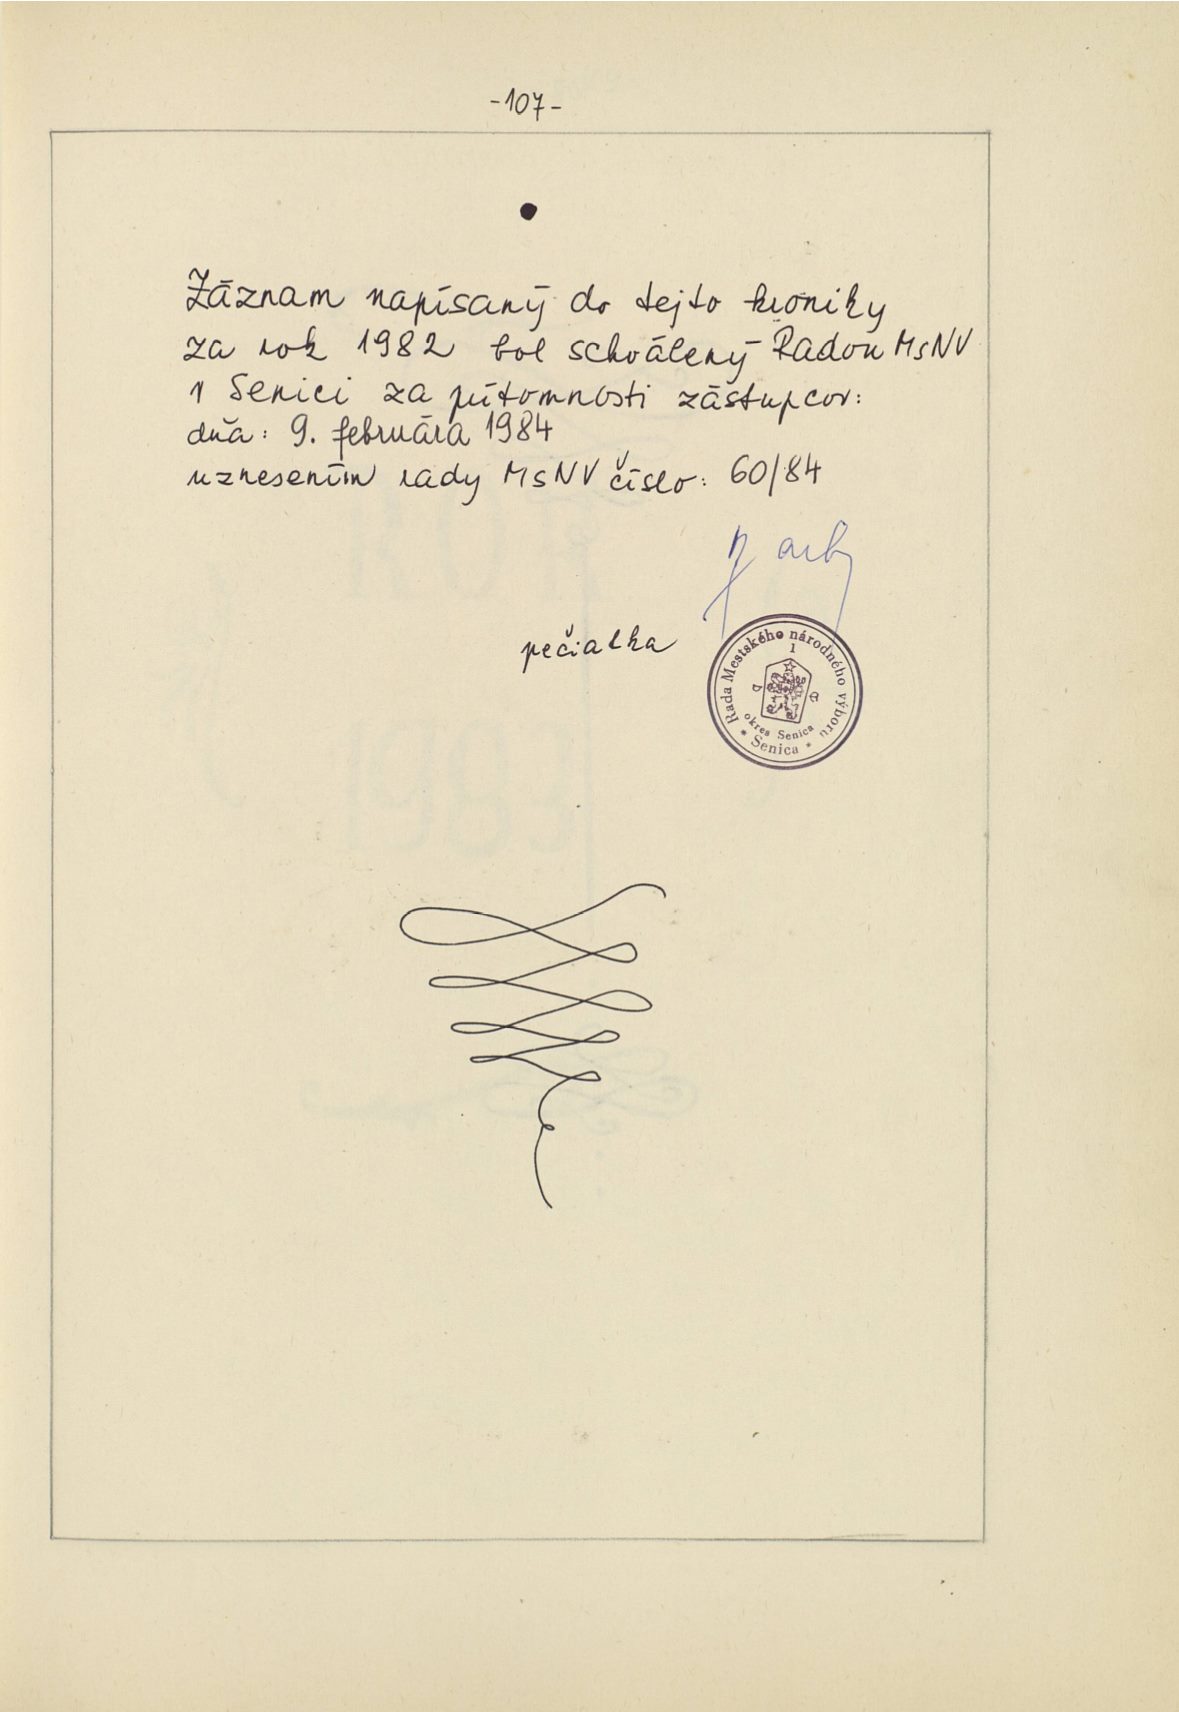 -107-
Záznam napísaný do tejto kroniky
za rok 1982 bol schválený Radou MsNV
v Senici za prítomnosti zástupcov:
dňa: 9. februára 1984
uznesením rady MsNV číslo: 60/84
pečiatka
Rada Mestského národného výboru
1
okres Senica
* Senica *